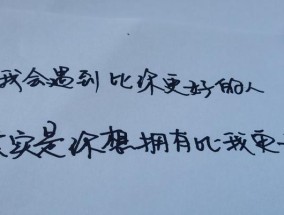 我会遇到比你更好的人
实是你想拥有比我更